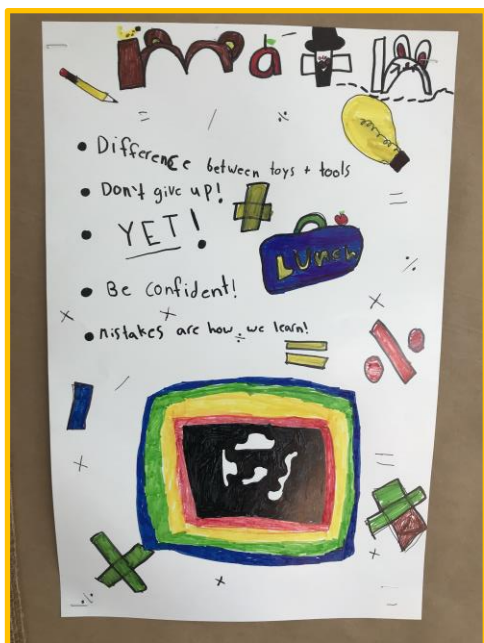 math
• Difference between toys + tools
• Don't give up!
• YET!
Lunch
• Be confident!
• mistakes are how we learn!